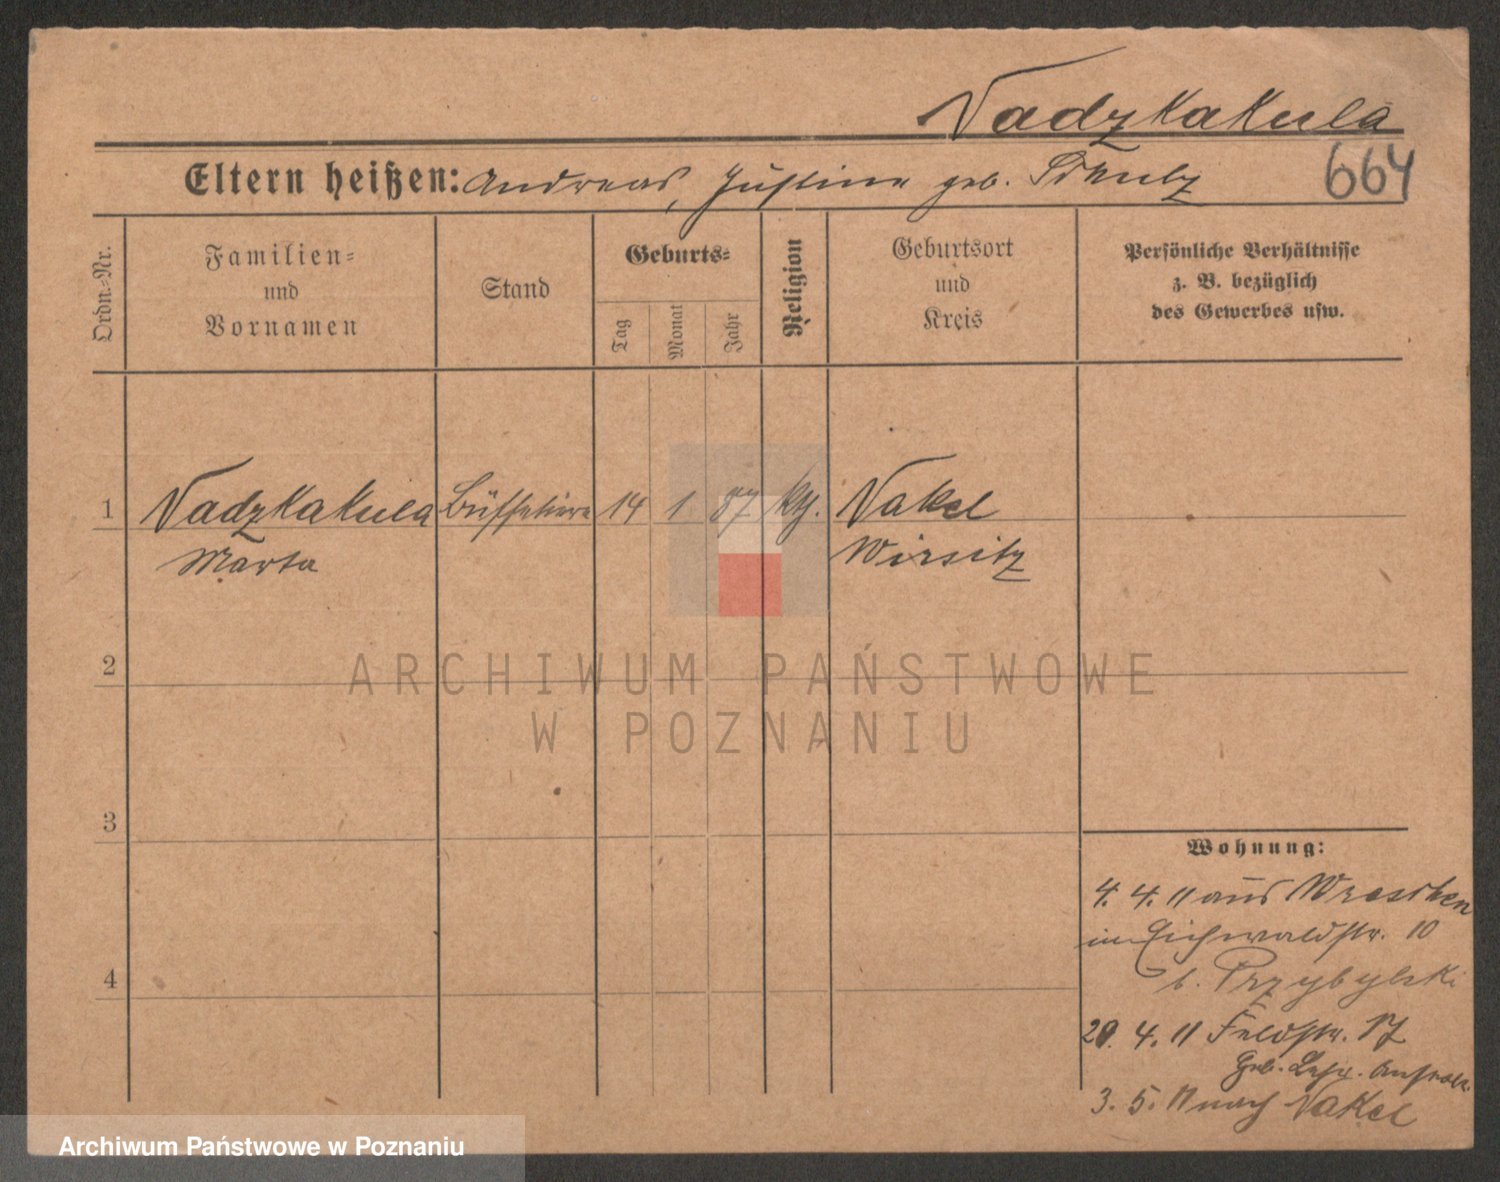 Nadzkakula
664
Eltern heißen: Andreas, Justine geb.
Ordn.-Nr.
Familien-
und
Vornamen
Stand
Geburts-
Tag
Monat
Jahr
Religion
Geburtsort
und
Kreis
Persönliche Verhältnisse
z. B. bezüglich
des Gewerbes usw.
1 Nadzkakula Büffetiere 14 1 87 kth. Nakel
Marta Wirsitz
2
3
4
Wohnung:
4. 4. 11 aus Wreschen
in Eichwaldstr. 10
b. Przybylski
20. 4. 11 Feldstr. 17
Geb.
3. 5. 11 nach Nakel
ARCHIWUM PAŃSTWOWE
W POZNANIU
Archiwum Państwowe w Poznaniu